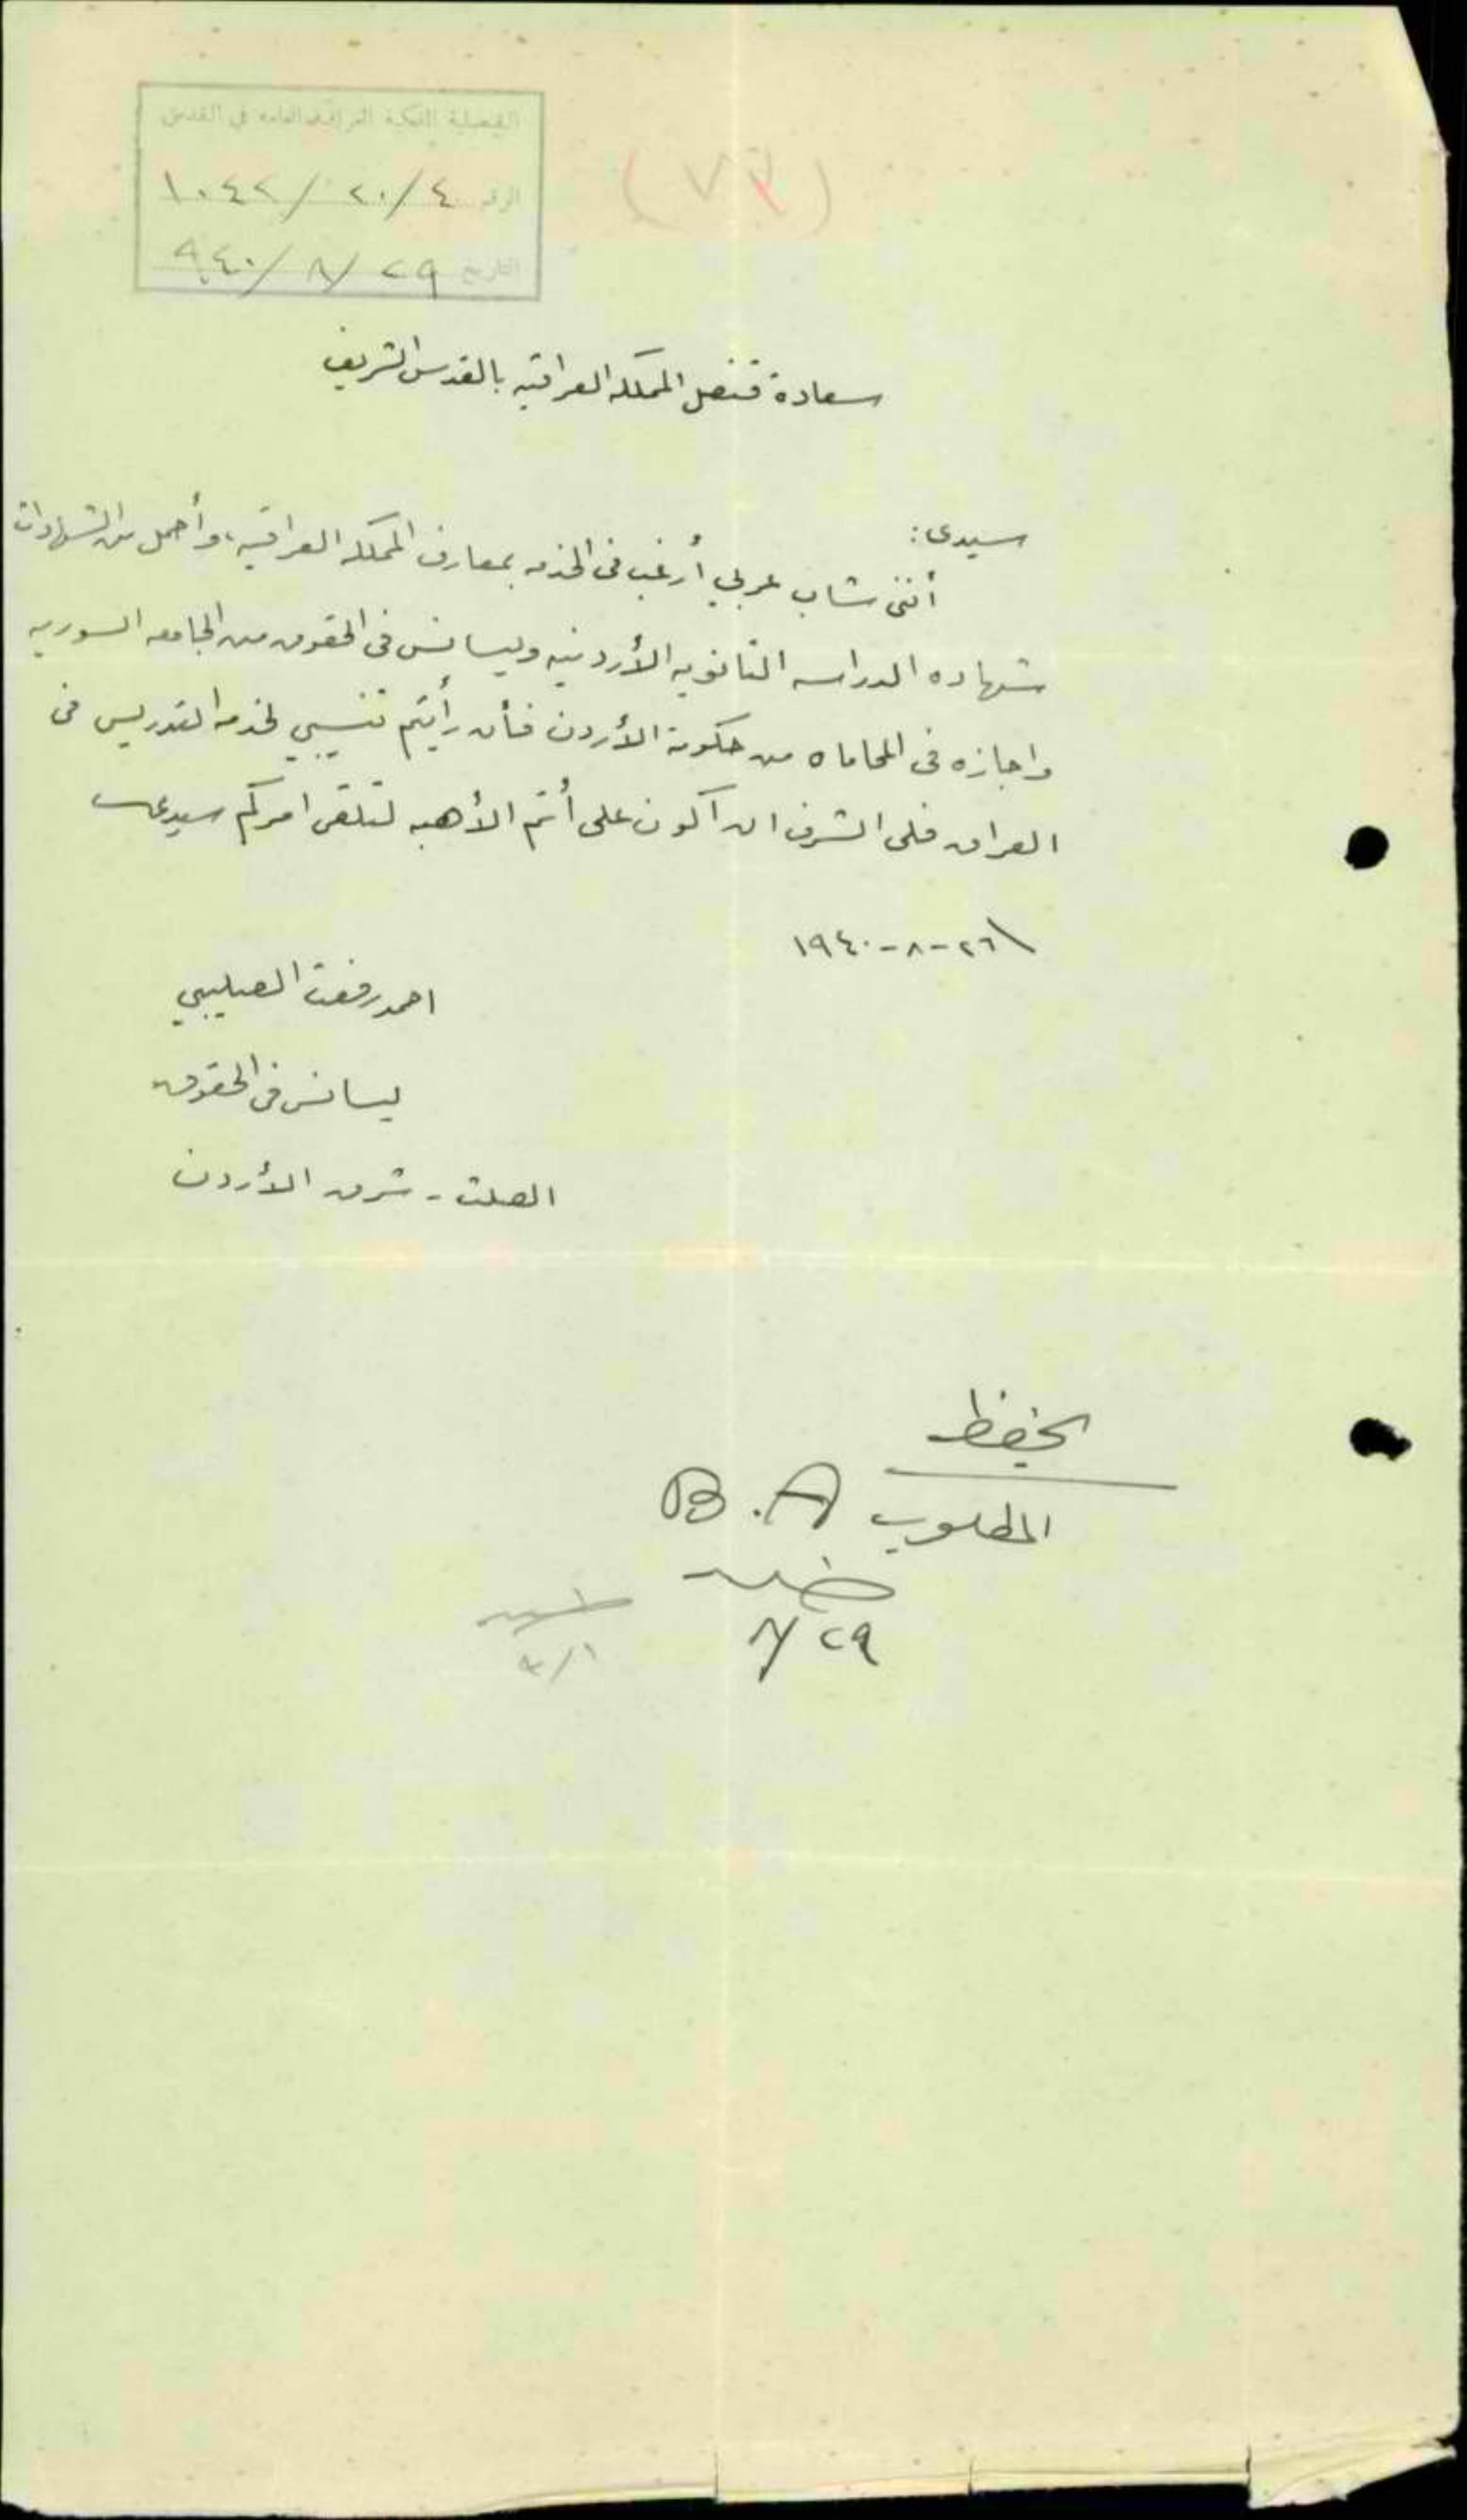 القنصلية الملكية العراقية العامة في القدس
الرقم ٤/٢٠/١٠٤٢
التاريخ ٢٩/٨/٩٤٠
(٧٣)
سعادة قنصل المملكه العراقيه بالقدس الشريف
سيدى:
أننى شاب عربي أرغب فى الخدمه بمعارف المملكه العراقيه، وأحمل من الشهادات
شهاده الدراسه الثانويه الأردنيه وليسانس فى الحقوق من الجامعه السوريه
واجازه فى المحاماه من حكومة الأردن فأن رأيتم تنسيبي لخدمه التدريس فى
العراق فلى الشرف ان اكون على أتم الأهبه لتلقى امركم سيدى
٢٦-٨-١٩٤٠
احمد رفعت الصليبي
ليسانس فى الحقوق
الصلت - شرق الأردن
يحفظ
المطلوب B.A
٢٩/٨